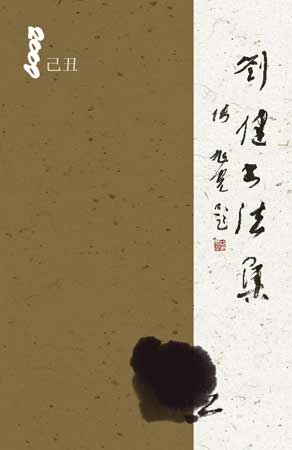 2009
己丑
劉健书法集
何旭光題